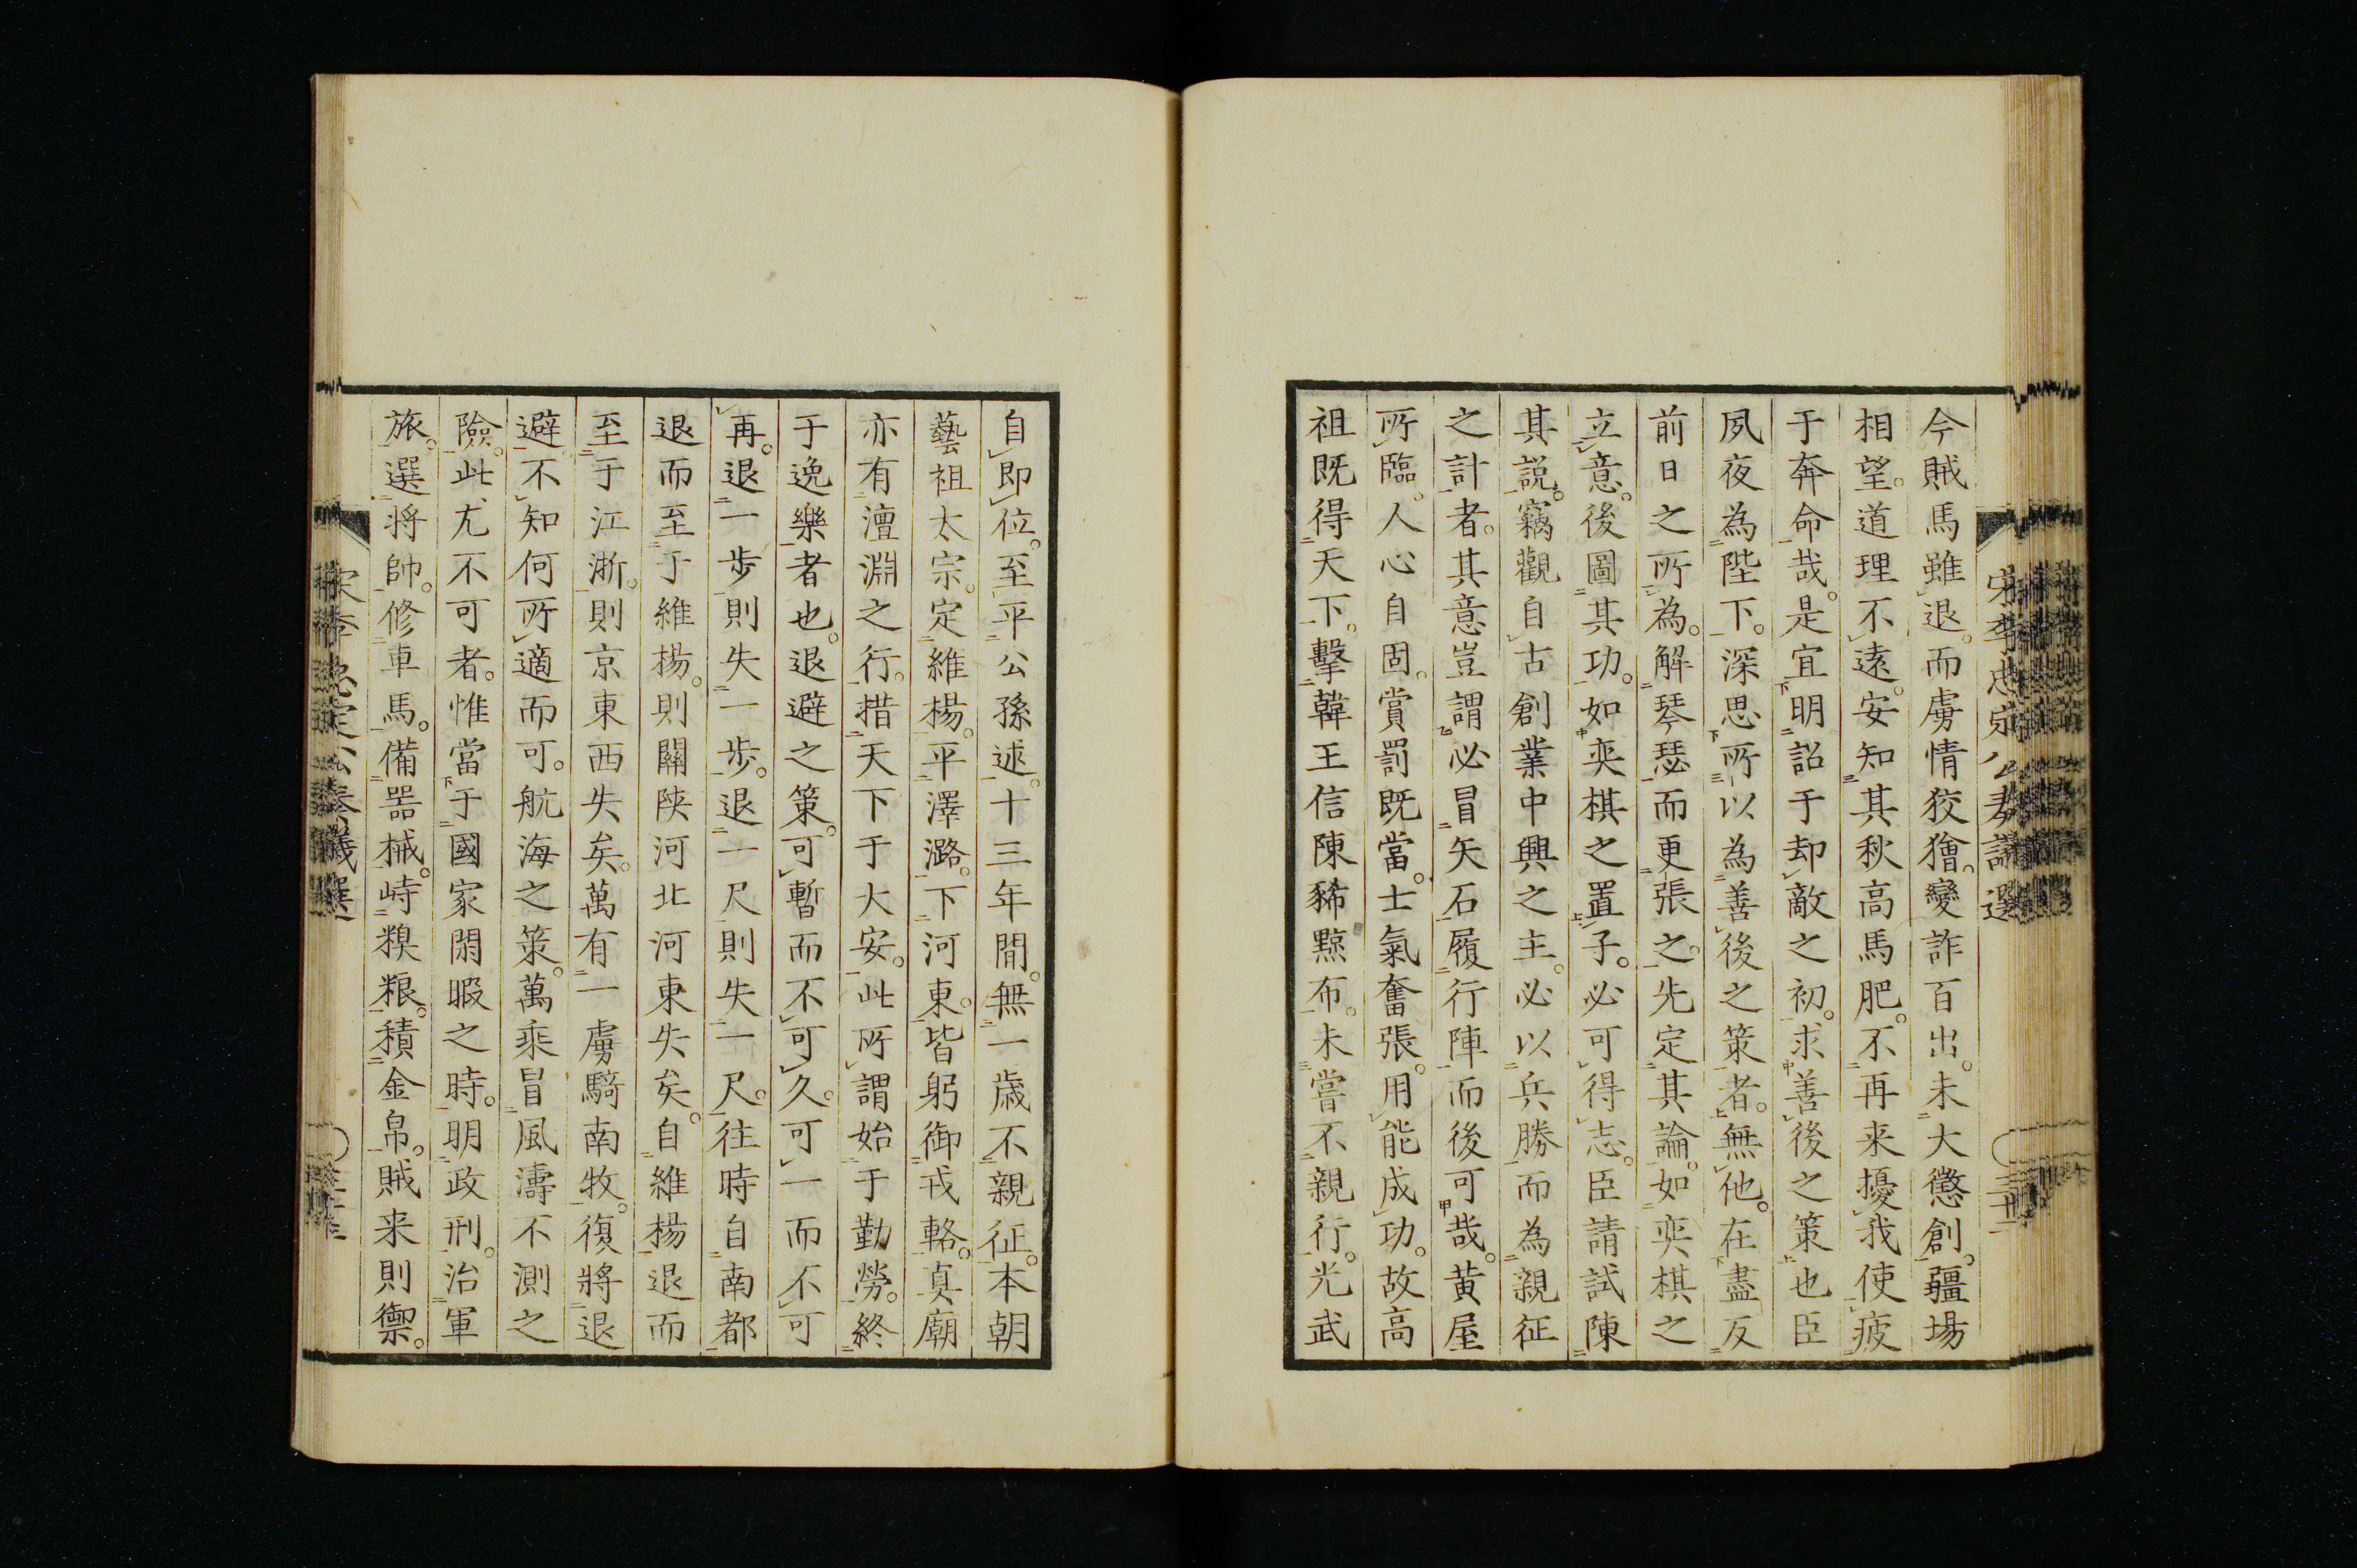 今賊馬雖退。而虜情狡獪。變詐百出。未大懲創。疆場
相望。道理不遠。安知其秋高馬肥。不再来擾我使疲
于奔命哉。是宜明詔于却敵之初。求善後之策也臣
夙夜為陛下。深思所以為善後之策者。無他。在盡反
前日之所為。解琴瑟而更張之。先定其論。如奕棋之
立意。後圖其功。如奕棋之置子。必可得志。臣請試陳
其説。竊觀自古創業中興之主。必以兵勝而為親征
之計者。其意豈謂必冒矢石履行陣而後可哉。黄屋
所臨。人心自固。賞罰既當。士氣奮張。用能成功。故高
祖既得天下。擊韓王信陳豨黥布。未嘗不親行。光武
自即位。至平公孫述。十三年間。無一歳不親征。本朝
藝祖太宗。定維楊。平澤潞。下河東。皆躬御戎輅。真廟
亦有澶淵之行。措天下于大安。此所謂始于勤勞。終
于逸樂者也。退避之策。可暫而不可久。可一而不可
再。退一歩則失一歩。退一尺則失一尺。往時自南都
退而至于維楊。則關陝河北河東失矣。自維楊退而
至于江浙。則京東西失矣。萬有一虜騎南牧。復將退
避不知何所適而可。航海之策。萬乘冒風濤不測之
險。此尤不可者。惟當于國家閑暇之時。明政刑。治軍
旅。選将帥。修車馬。備器械。峙糗粮。積金帛。賊来則禦。